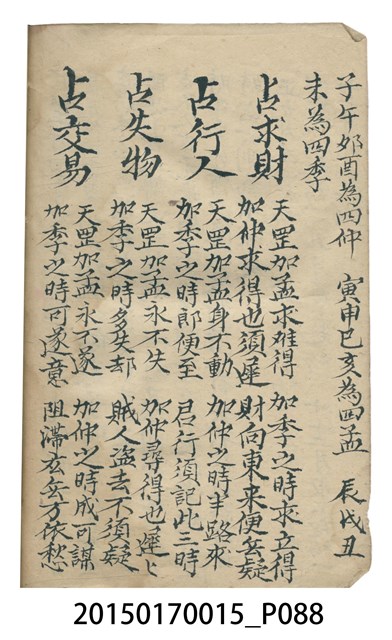 子午夘酉為四仲　寅申巳亥為四孟　辰戌丑
未為四季
占求財
天罡加孟求难得　加季之時求立得
加仲求得也須遲　財向東来便無疑
占行人
天罡加孟身不動　加仲之時半路來
加季之時郎便至　君行須記此三時
占失物
天罡加孟永不失　加仲尋得也遲〻
加季之時多失却　賊人盜去不須疑
占交易
天罡加孟永不遂　加仲之時成可謀
加季之時可遂意　阻滞玄岳方依愁
20150170015_P088